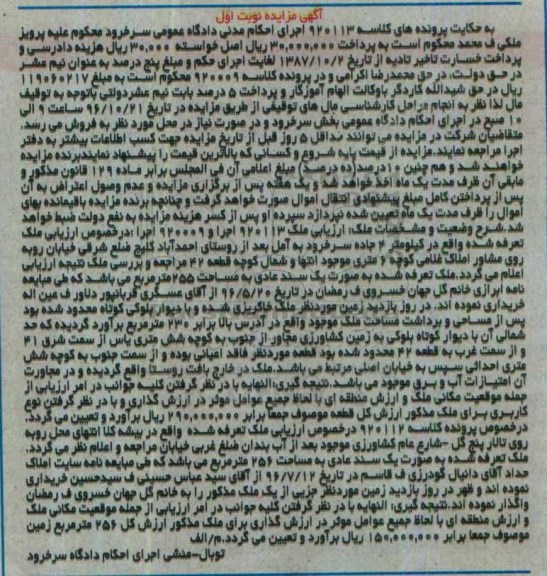 آگهی مزایده نوبت اول
به حکایت پرونده های کلاسه ۹۲۰۱۱۳ اجرای احکام مدنی دادگاه عمومی سرخرود محکوم علیه پرویز
ملکی ف محمد محکوم است به پرداخت ۳۰,۰۰۰,۰۰۰ ریال اصل خواسته ۳۰,۰۰۰ ریال هزینه دادرسی و
پرداخت خسارت تاخیر تادیه از تاریخ ۱۳۸۷/۱۰/۲ لغایت اجرای حکم و مبلغ پنج درصد به عنوان نیم عشر
در حق دولت، در حق محمدرضا اکرامی و در پرونده کلاسه ۹۲۰۰۰۹ محکوم است به مبلغ ۱۱۹۰۶۰۲۱۷
ریال در حق شیدالله کاردگر باوکالت الهام آموزگار و پرداخت ۵ درصد بابت نیم عشردولتی باتوجه به توقیف
مال لذا نظر به انجام مراحل کارشناسی مال های توقیفی از طریق مزایده در تاریخ ۹۶/۱۰/۲۱ ساعت ۹ الی
۱۰ صبح در اجرای احکام دادگاه عمومی بخش سرخرود و در صورت نیاز در محل مورد نظر به فروش می رسد.
متقاضیان شرکت در مزایده می توانند حداقل ۵ روز قبل از تاریخ مزایده جهت کسب اطلاعات بیشتر به دفتر
اجرا مراجعه نمایند.مزایده از قیمت پایه شروع و کسانی که بالاترین قیمت را پیشنهاد نمایندبرنده مزایده
خواهند شد و هم چنین ۱۰درصد(ده درصد) مبلغ اعلامی آن فی المجلس برابر ماده ۱۲۹ قانون مذکور و
مابقی آن ظرف مدت یک ماه اخذ خواهد شد و یک هفته پس از برگزاری مزایده و عدم وصول اعتراض به آن
پس از پرداختن کامل مبلغ پیشنهادی انتقال اموال صورت خواهد گرفت و چنانچه برنده مزایده باقیمانده بهای
اموال را ظرف مدت یک ماه تعیین شده نپردازد سپرده او پس از کسر هزینه مزایده به نفع دولت ضبط خواهد
شد.شرح وضعیت و مشخصات ملک: ارزیابی ملک ۹۲۰۱۱۳ اجرا و ۹۲۰۰۰۹ اجرا :درخصوص ارزیابی ملک
تعرفه شده واقع در کیلومتر ۴ جاده سرخرود به آمل بعد از روستای احمدآباد کلیج ضلع شرقی خیابان روبه
روی مشاور املاک غلامی کوچه ۶ متری موجود انتها و شمال کوچه قطعه ۴۲ مراجعه و بررسی ملک نتیجه ارزیابی
اعلام می گردد.ملک تعرفه شده به صورت یک سند عادی به مساحت ۲۵۵مترمربع می باشد که طی مبایعه
نامه ابرازی خانم گل جهان خسروی ف رمضان در تاریخ ۹۶/۵/۲۰ از آقای عسگری قربانپور دلاور ف عین اله
خریداری نموده اند. در روز بازدید زمین موردنظر ملک خاکریزی شده و با دیوار بلوکی کوتاه محدود شده بود
پس از مساحی و برداشت مساحت ملک موجود واقع در آدرس بالا برابر ۲۳۰ مترمربع برآورد گردیده که حد
شمالی آن با دیوار کوتاه بلوکی به زمین کشاورزی مجاور از جنوب به کوچه شش متری پاس از سمت شرق ۴۱
و از سمت غرب به قطعه ۴۳ محدود شده بود قطعه موردنظر فاقد اعیانی بوده و از سمت جنوب به کوچه شش
متری احداثی سپس به خیابان اصلی مرتبط می باشد.ملک در خارج بافت روستا واقع گردیده و در مجاورت
آن امتیازات آب و برق موجود می باشد.نتیجه گیری:النهایه با در نظر گرفتن کلیه جوانب در امر ارزیابی از
جمله موقعیت مکانی ملک و ارزش منطقه ای با لحاظ جمیع عوامل موثر در ارزش گذاری و با در نظر گرفتن نوع
کاربری برای ملک مذکور ارزش کل قطعه موصوف جمعا برابر ۲۹۰,۰۰۰,۰۰۰ ریال برآورد و تعیین می گردد.
درخصوص پرونده کلاسه ۹۲۰۱۱۲ درخصوص ارزیابی ملک تعرفه شده واقع در بیشه کلا انتهای محل روبه
روی تالار پنج گل -شارع عام کشاورزی موجود بعد از آب بندان ضلع غربی خیابان مراجعه و اعلام نظر می گردد.
ملک تعرفه شده به صورت یک سند عادی به مساحت ۲۵۶ مترمربع می باشد که طی مبایعه نامه سایت املاک
حداد آقای دانیال گودرزی ف قاسم در تاریخ ۹۶/۷/۱۲ از آقای سید عباس حسینی ف سیدحسین خریداری
نموده اند و ظهر در روز بازدید زمین موردنظر جزیی از یک ملک مذکور را به خانم گل جهان خسروی ف رمضان
واگذار نموده اند.نتیجه گیری: النهایه با در نظر گرفتن کلیه جوانب در امر ارزیابی از جمله موقعیت مکانی ملک
و ارزش منطقه ای با لحاظ جمیع عوامل موثر در ارزش گذاری برای ملک مذکور ارزش کل ۲۵۶ مترمربع زمین
موصوف جمعا برابر ۱۵۰,۰۰۰,۰۰۰ ریال برآورد و تعیین می گردد.م/الف
توبال-منشی اجرای احکام دادگاه سرخرود